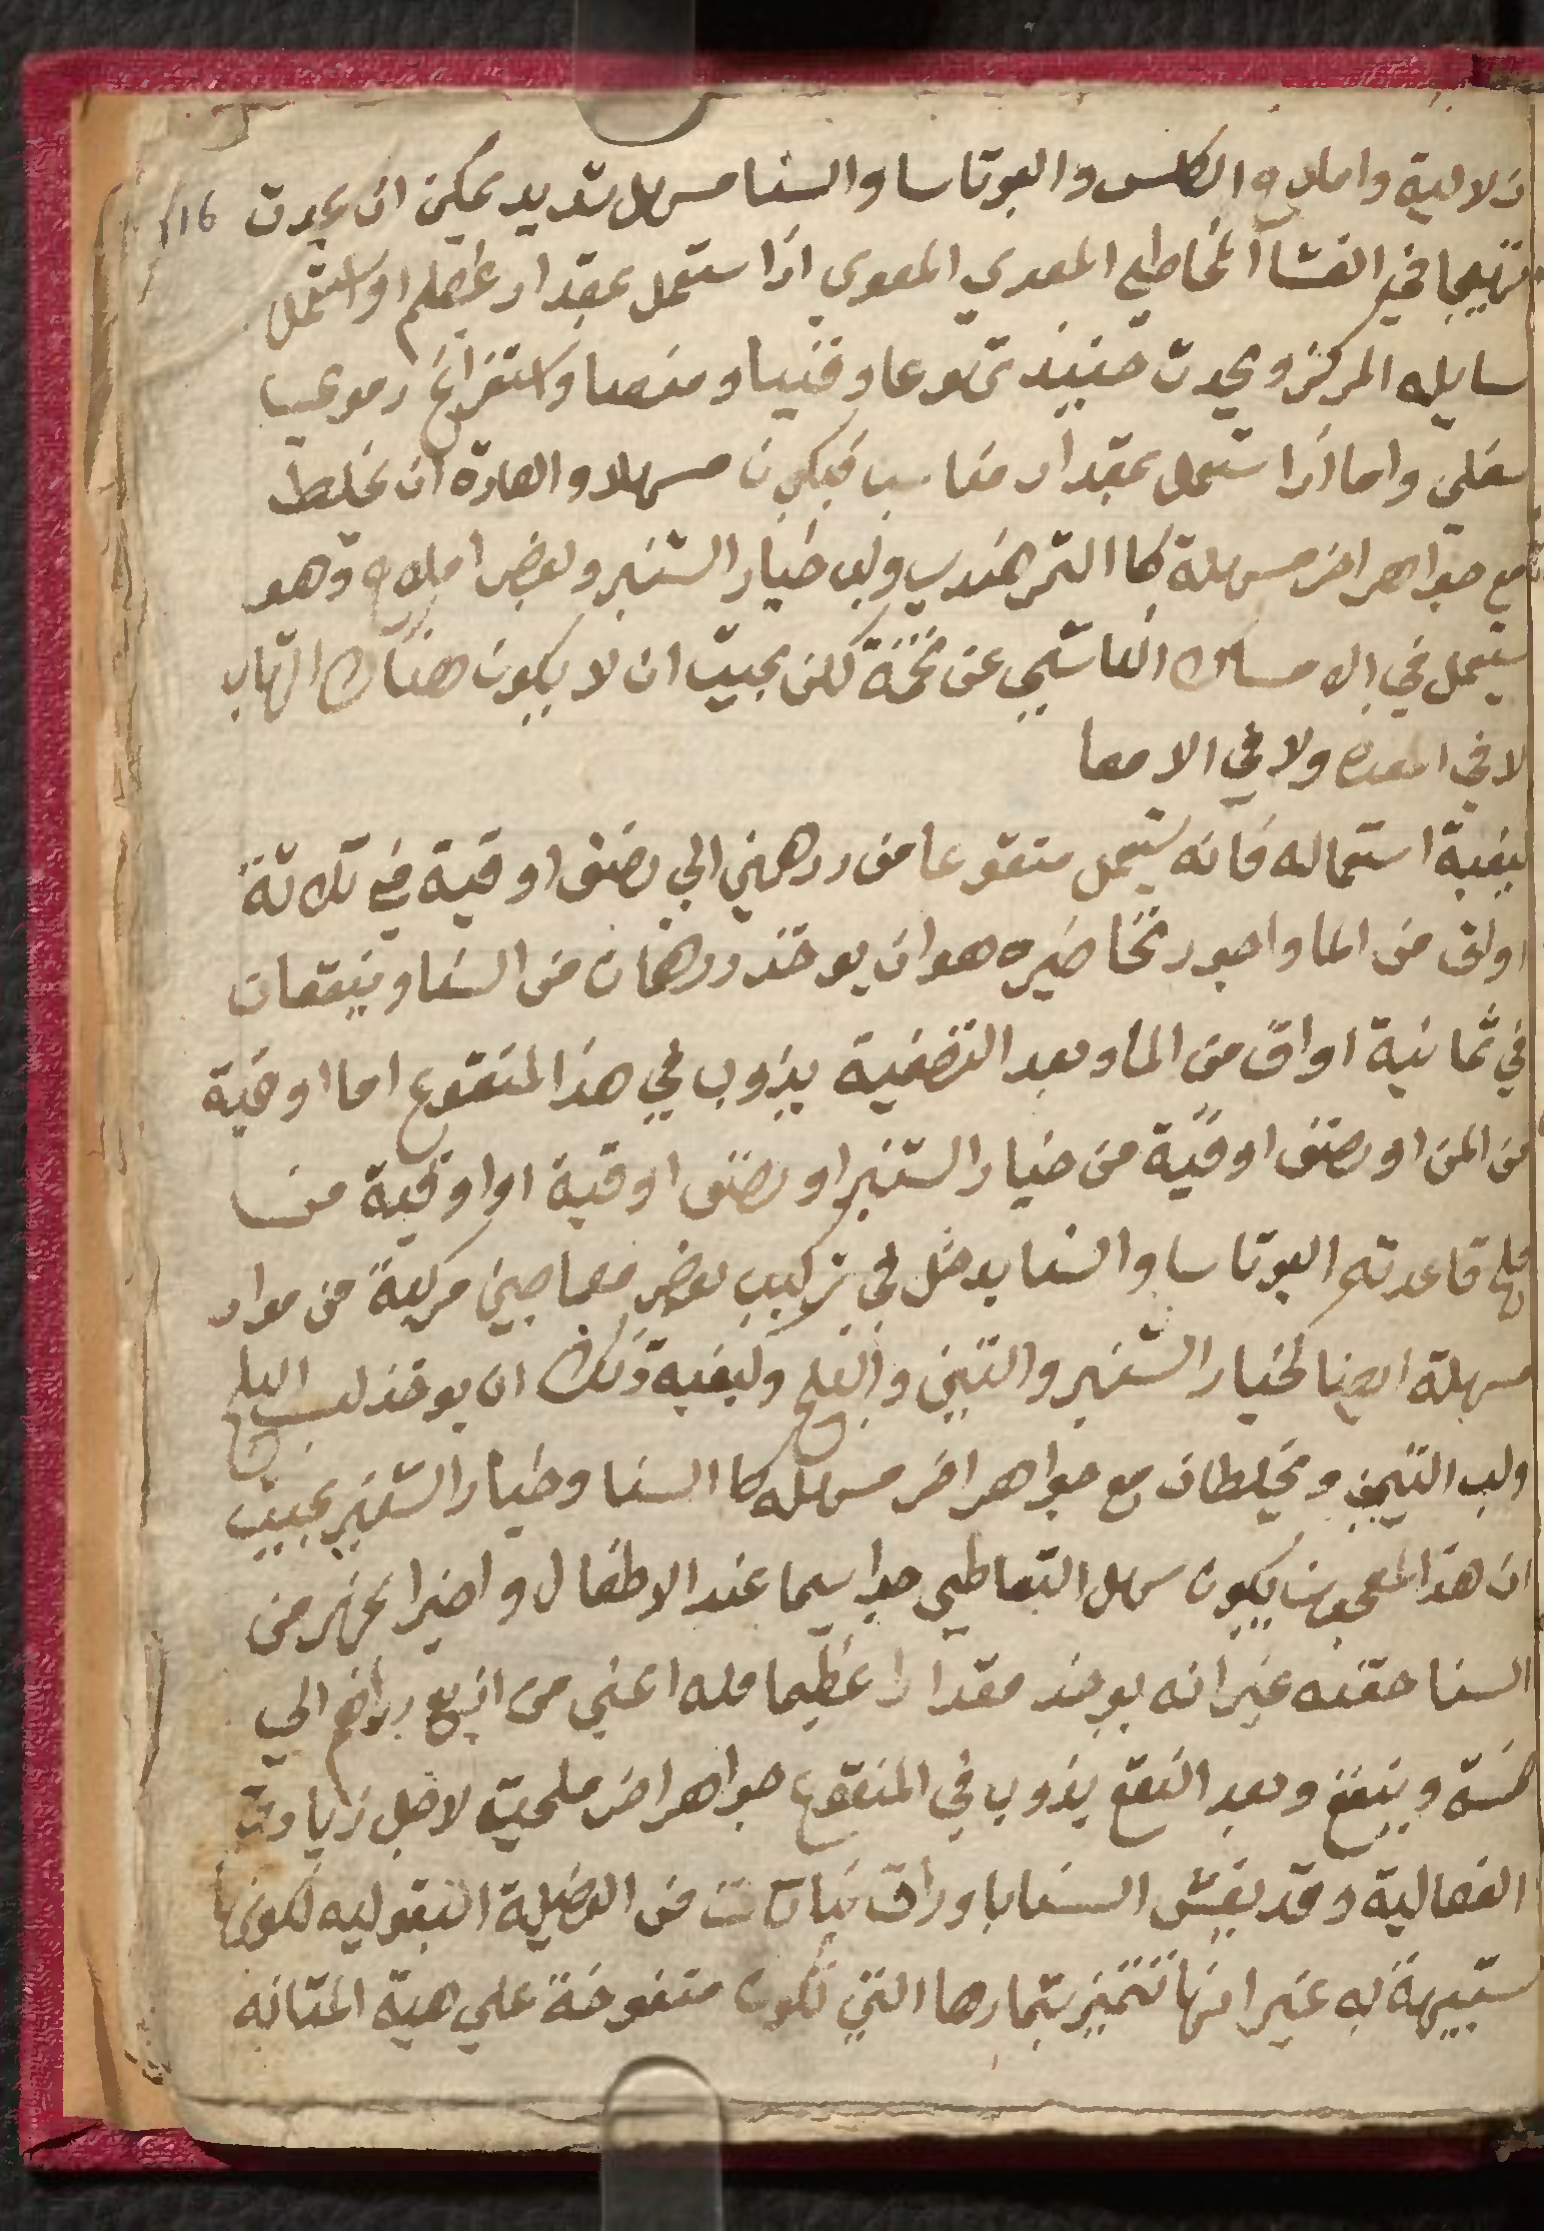 زلالية واملاح الكلس والبوتاسا والسنا مسهل شديد يمكن ان يحدث 16
تهيجا في الغشا المخاطي المعدي المعوي اذا ستعمل بمقدار عظيم او استعمل
سايله المركز ويحدث حينيذ تهوعا وقييا ومغصا واستفراغ دموي
سفلي واما اذا ستعمل بمقدار مناسب فيكون مسهلا والعادة ان يخلط
مع جواهر اخر مسهلة كا التمر هندي ولب خيار الشنبر وبعض املاح وهو
يستعمل في الامساك الناشي عن تخمة لكن بحيث ان لا يكون هناك التهاب
لا في المعده ولا في الامعا
كيفية استعماله فانه يستعمل منقوعا من درهمين الي نصف اوقية في ثلاثة
اواق من الما واجود تحاضيره هو ان يوخذ درهمان من السنا وينقعان
في ثمانية اواق من الما وبعد التصفية يذوب في هذا المنقوع اما اوقية
من المن او نصف اوقية من خيار الشنبر او نصف اوقية او اوقية من
ملح قاعدته البوتاسا والسنا يدخل في تركيب بعض معاجين مركبة من مواد
مسهلة ايضا كخيار الشنبر والتين والبلح وكيفية ذلك ان يوخذ لب البلح
ولب التين ويخلطان مع جواهر اخر مسهله كا السنا وخيار الشنبر بحيث
ان هذا المعجون يكون سهل التعاطي جدا سيما عند الاطفال واخيرا يحضر من
السنا حقنه غير انه يوخذ مقدارا عظيما منه اعني من اربع دراهم الي
خمسة وينقع وبعد النقع يذوب في المنقوع جواهر اخر ملحية لاجل زيادة
الفعالية وقد يغش السنا باوراق نباتات من الفصيلة البقوليه لكونها
شبيهة به غير انها تتميز بثمارها التي تكون منفوخة علي هية المثانه